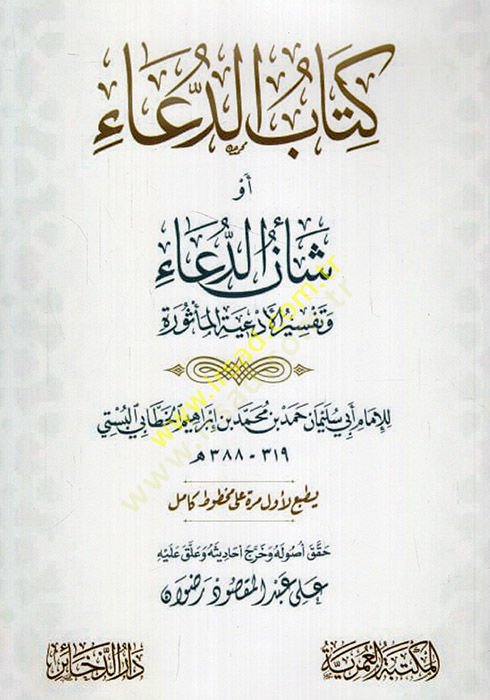 كِتَابُ الدُّعَاءِ
أَوْ
شَأْنُ الدُّعَاءِ
وَتَفْسِيرُ الأَدْعِيَةِ المَأْثُورَةِ
للإمام أبي سليمان حمد بن محمد بن إبراهيم الخطابي البستي
٣١٩ - ٣٨٨ هـ
يطبع لأول مرة على مخطوط كامل
حَقَّقَ أُصُولَهُ وَخَرَّجَ أَحَادِيثَهُ وَعَلَّقَ عَلَيْهِ
علي عبد المقصود رضوان
المكتبة العمرية
دار الذخائر